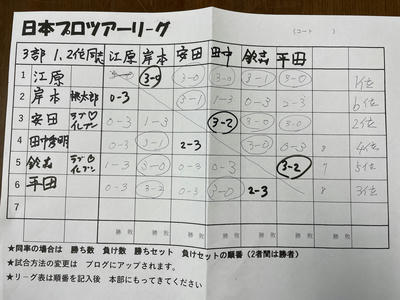 日本プロツアーリーグ
(コート )
3部 1,2位同志 江原 岸本 安田 田中 鈴森 平田
1 江原 3-0 3-0 3-0 3-1 3-0 1位
2 岸本 桃太郎 0-3 3-1 1-3 0-3 2-3 6位
3 安田 ラブ♡イレブン 0-3 1-3 3-2 3-0 3-0 2位
4 田中彦明 0-3 3-1 2-3 3-0 0-3 8 4位
5 鈴森 ラブ♡イレブン 1-3 3-0 0-3 0-3 3-2 7 5位
6 平田 0-3 3-2 0-3 3-0 2-3 8 3位
7
勝 敗 勝 敗 勝 敗 勝 敗 勝 敗 勝 敗 勝 敗
★同率の場合は 勝ち数 負け数 勝ちセット 負けセットの順番(2者間は勝者)
★試合方法の変更は ブログにアップされます。
★リーグ表は順番を記入後 本部にもってきてください